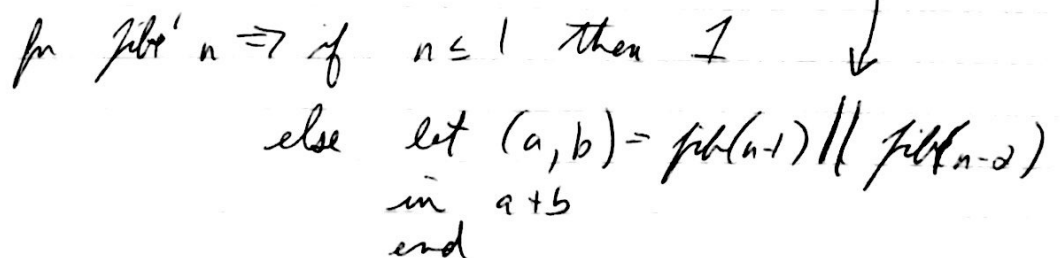 fn fib' n ⇒ if n ≤ 1 then 1
else let (a, b) = fib(n-1) || fib(n-2)
in a + b
end